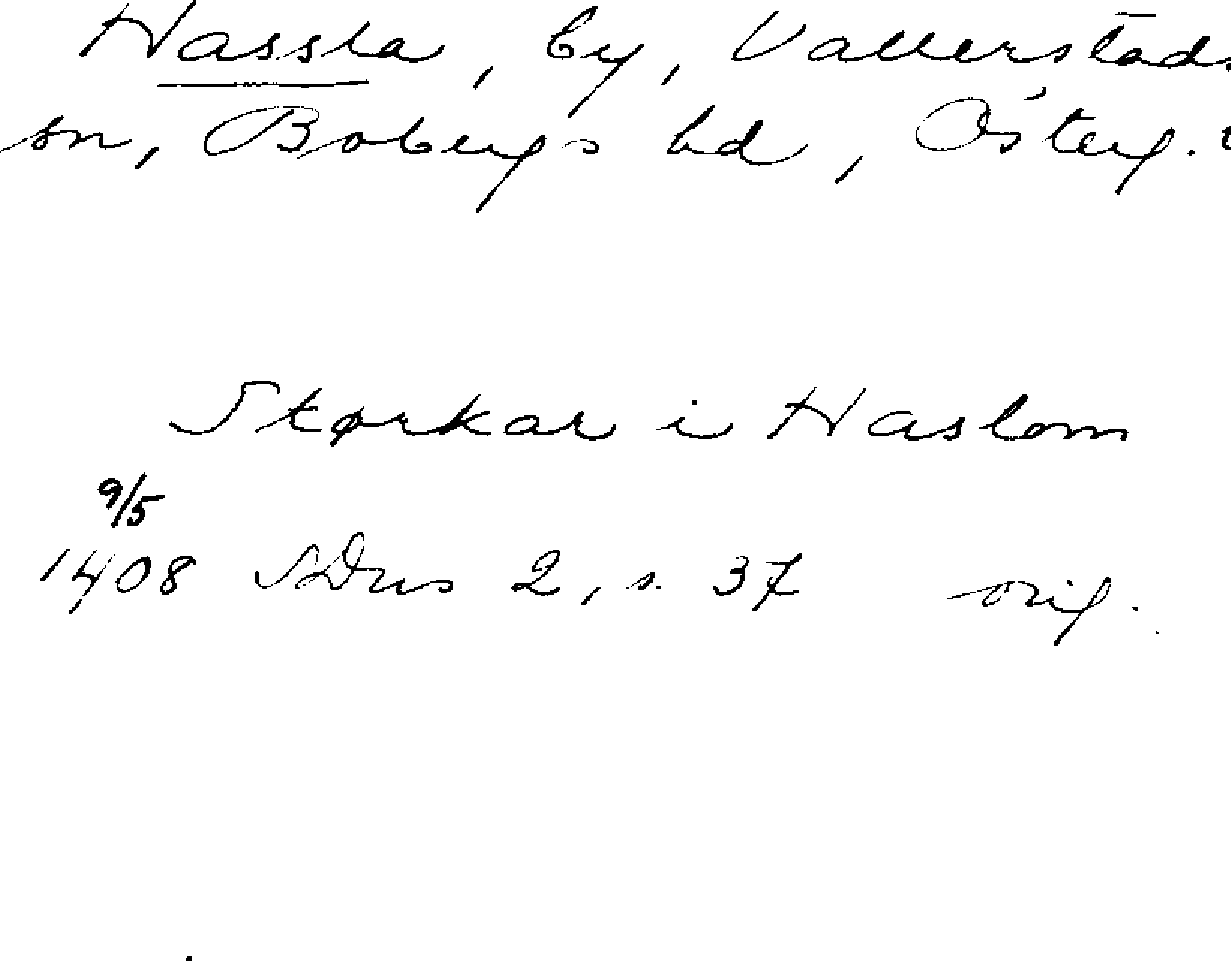 Hassla, by, Vallerstads
sn, Bobergs hd, Österg.
Størkar i Haslom
9/5
1408 SDns 2, s. 37 orig.